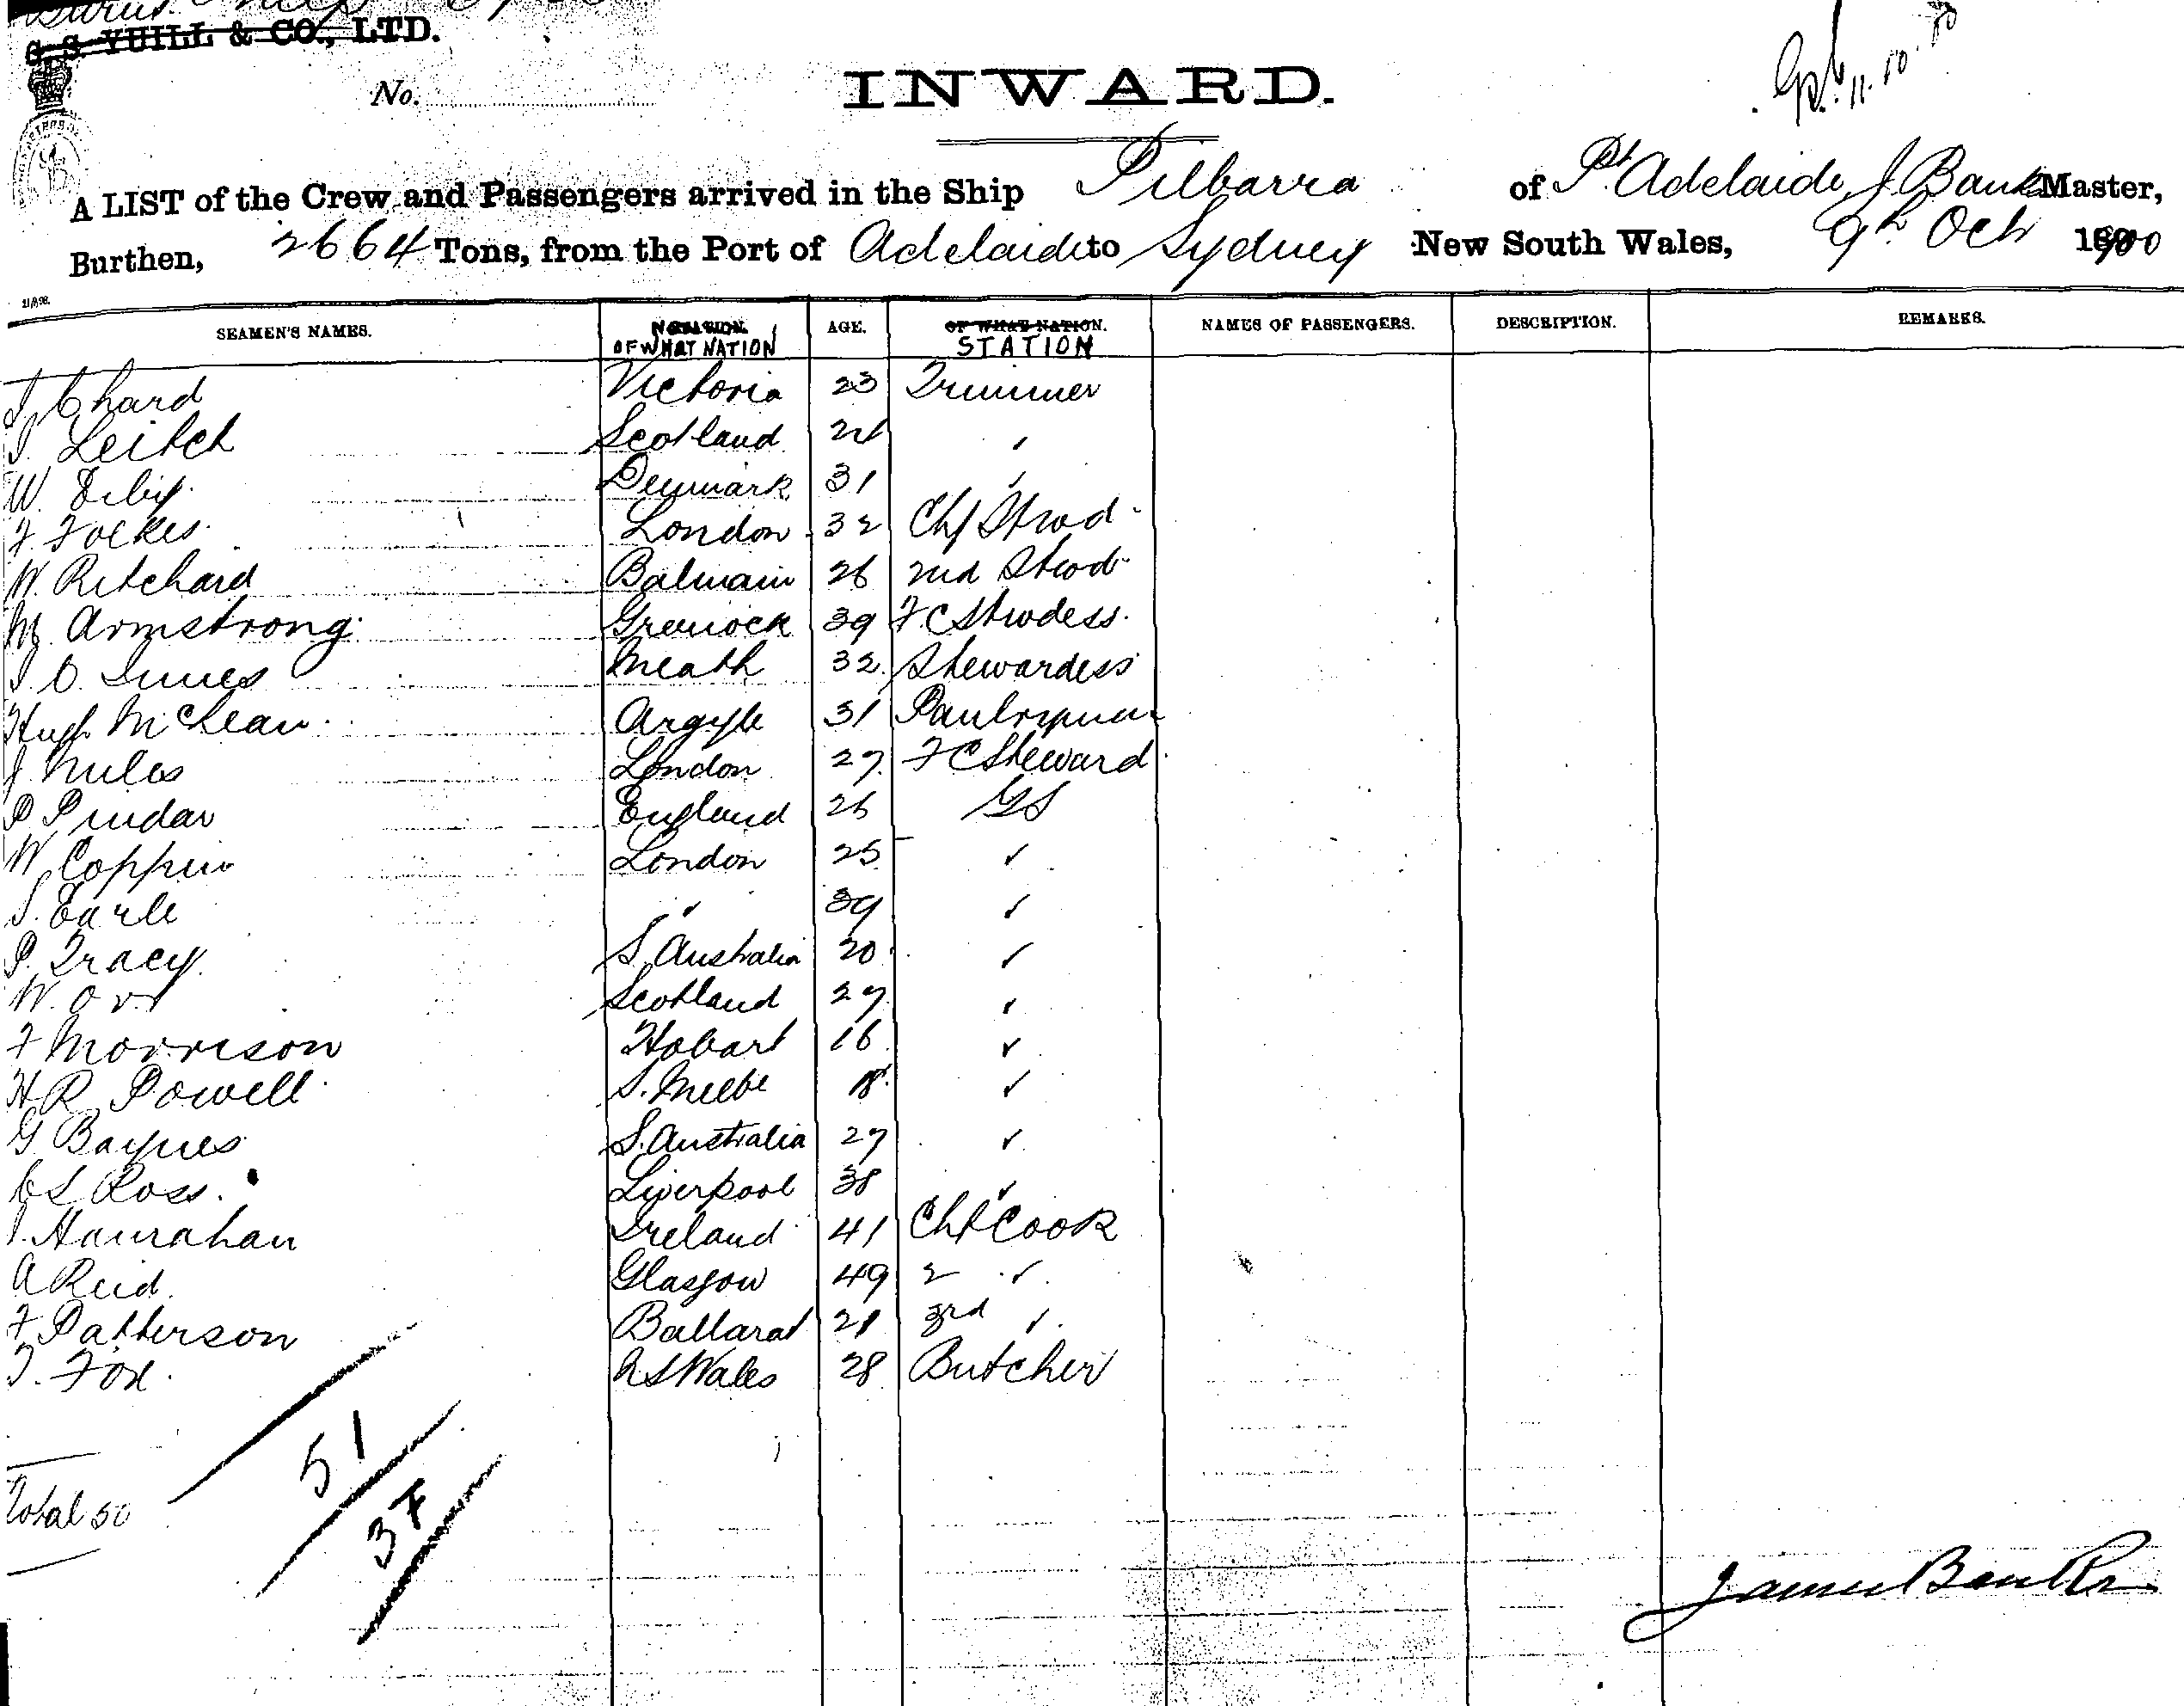 G. S. YUILL & CO., LTD.
No.
INWARD.
11.10.00
A LIST of the Crew and Passengers arrived in the Ship Pilbarra of Pt Adelaide, J. Banks Master,
Burthen, 2664 Tons, from the Port of Adelaide to Sydney New South Wales, 9th Oct 1900
SEAMEN'S NAMES. OF WHAT NATION AGE. OF WHAT NATION. STATION NAMES OF PASSENGERS. DESCRIPTION. REMARKS.
Chard Victoria 23 Trimmer
Leitch Scotland 21 "
W. Denmark 31 "
F. Folkes London 32 Chf Stwd
W. Ritchard Balmain 26 2nd Stwd
M Armstrong Greenock 39 F C Stwdess
Innes Meath 32 Stewardess
Hugh McLean Argyle 31 Pantryman
J. Miles London 27 F C Steward
P Pindar England 26 GS
W Coppin London 25 "
S. Earle " 39 "
P. Tracy S. Australia 20 "
W. Orr Scotland 27 "
F Morrison Hobart 16 "
H R Powell S. Melbe 18 "
G Baynes S. Australia 27 "
C L Ross Liverpool 38 "
Hanrahan Ireland 41 Chf Cook
A Reid Glasgow 49 2 "
F Patterson Ballarat 21 3rd "
T. Fox N S Wales 28 Butcher
51
Total 50
37
James Banks